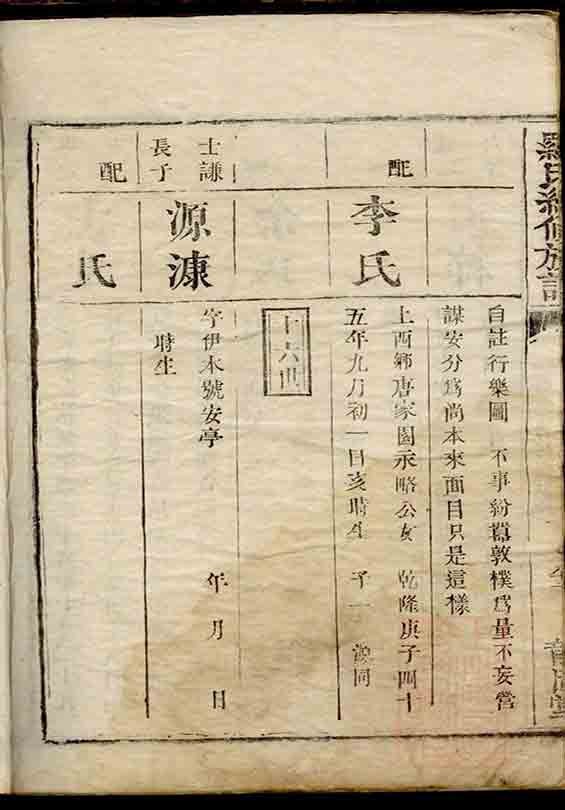 羅氏續修族譜
自註行樂圖 不事紛囂敦樸為量不妄營
謀安分為尚本來面目只是這樣
配
李氏
上西鄉唐家園永略公女 乾隆庚子四十
五年九月初一日亥時生 子一 同
十六世
士謙
長子
源溓
字伊木號安亭 年 月 日
時生
配
氏